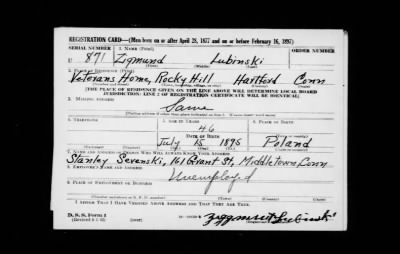 REGISTRATION CARD—(Men born on or after April 28, 1877 and on or before February 16, 1897)
SERIAL NUMBER 1. NAME (Print)
U 871 Zigmund Lubinski
(First) (Middle) (Last)
2. PLACE OF RESIDENCE (Print)
Veterans Home, Rocky Hill Hartford Conn
[THE PLACE OF RESIDENCE GIVEN ON THE LINE ABOVE WILL DETERMINE LOCAL BOARD
JURISDICTION; LINE 2 OF REGISTRATION CERTIFICATE WILL BE IDENTICAL]
3. MAILING ADDRESS
Same
4. TELEPHONE 5. AGE IN YEARS 6. PLACE OF BIRTH
46
DATE OF BIRTH
July 15 1895 Poland
7. NAME AND ADDRESS OF PERSON WHO WILL ALWAYS KNOW YOUR ADDRESS
Stanley Sevenski, 161 Grant St, Middletown, Conn
8. EMPLOYER'S NAME AND ADDRESS
Unemployed
9. PLACE OF EMPLOYMENT OR BUSINESS
I AFFIRM THAT I HAVE VERIFIED ABOVE ANSWERS AND THAT THEY ARE TRUE.
D. S. S. Form 1